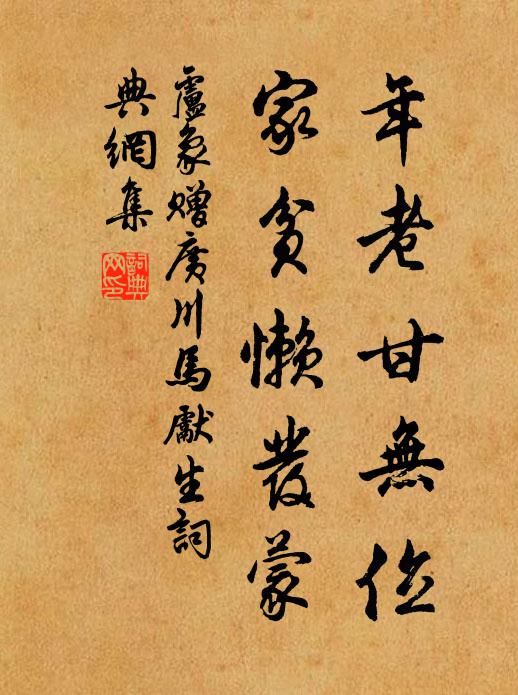 年老甘無位
家貧懶發蒙
盧象贈廣川馬獻生詞
典網集
詞典網印